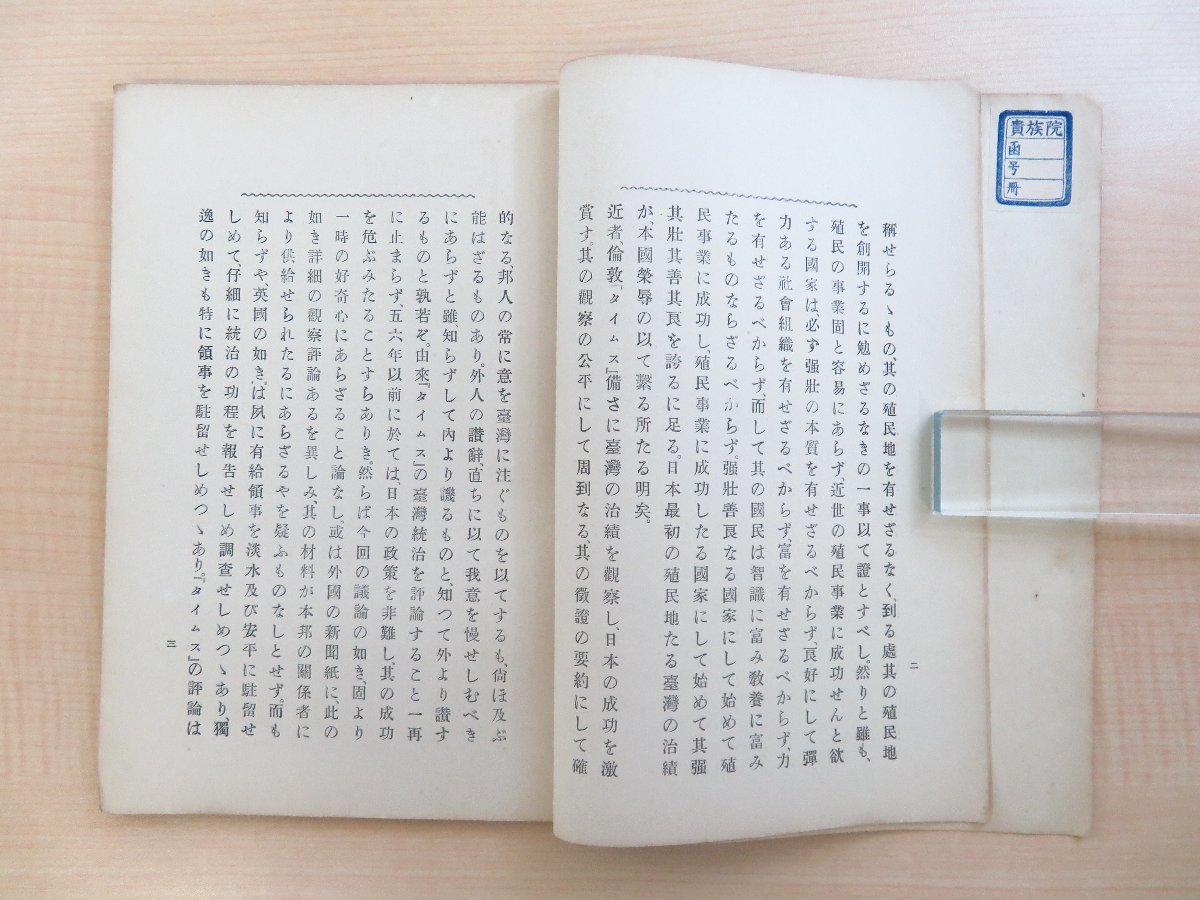 貴族院
函
号
冊
二
稱せらるゝもの、其の殖民地を有せざるなく、到る處其の殖民地
を創開するに勉めざるなきの一事以て證とすべし。然りと雖も、
殖民の事業固と容易にあらず、近世の殖民事業に成功せんと欲
する國家は、必ず强壯の本質を有せざるべからず、良好にして彈
力ある社會組織を有せざるべからず、富を有せざるべからず、力
を有せざるべからず、而して其の國民は智識に富み敎養に富み
たるものならざるべからず。强壯善良なる國家にして始めて殖
民事業に成功し、殖民事業に成功したる國家にして始めて其强
其壯其善其良を誇るに足る。日本最初の殖民地たる臺灣の治績
が、本國榮辱の以て繫る所たる明矣。
近者、倫敦『タイムス』備さに臺灣の治績を觀察し、日本の成功を激
賞す。其の觀察の公平にして周到なる、其の徵證の要約にして確
的なる、邦人の常に意を臺灣に注ぐものを以てするも、尙ほ及ぶ
能はざるものあり。外人の讃辭、直ちに以て我意を慢せしむべき
にあらずと雖、知らずして內より譏るものと、知つて外より讃す
るものと孰若ぞ。由來『タイムス』の臺灣統治を評論すること一再
に止まらず、五六年以前に於ては、日本の政策を非難し、其の成功
を危ぶみたることすらありき。然らば今回の議論の如き、固より
一時の好奇心にあらざること論なし。或は外國の新聞紙に、此の
如き詳細の觀察評論あるを異しみ、其の材料が本邦の關係者に
より供給せられたるにあらざるやを疑ふものなしとせず。而も
知らずや、英國の如き、は夙に有給領事を淡水及び安平に駐留せ
しめて、仔細に統治の功程を報告せしめ調査せしめつゝあり、獨
逸の如きも特に領事を駐留せしめつゝあり。『タイムス』の評論は
三